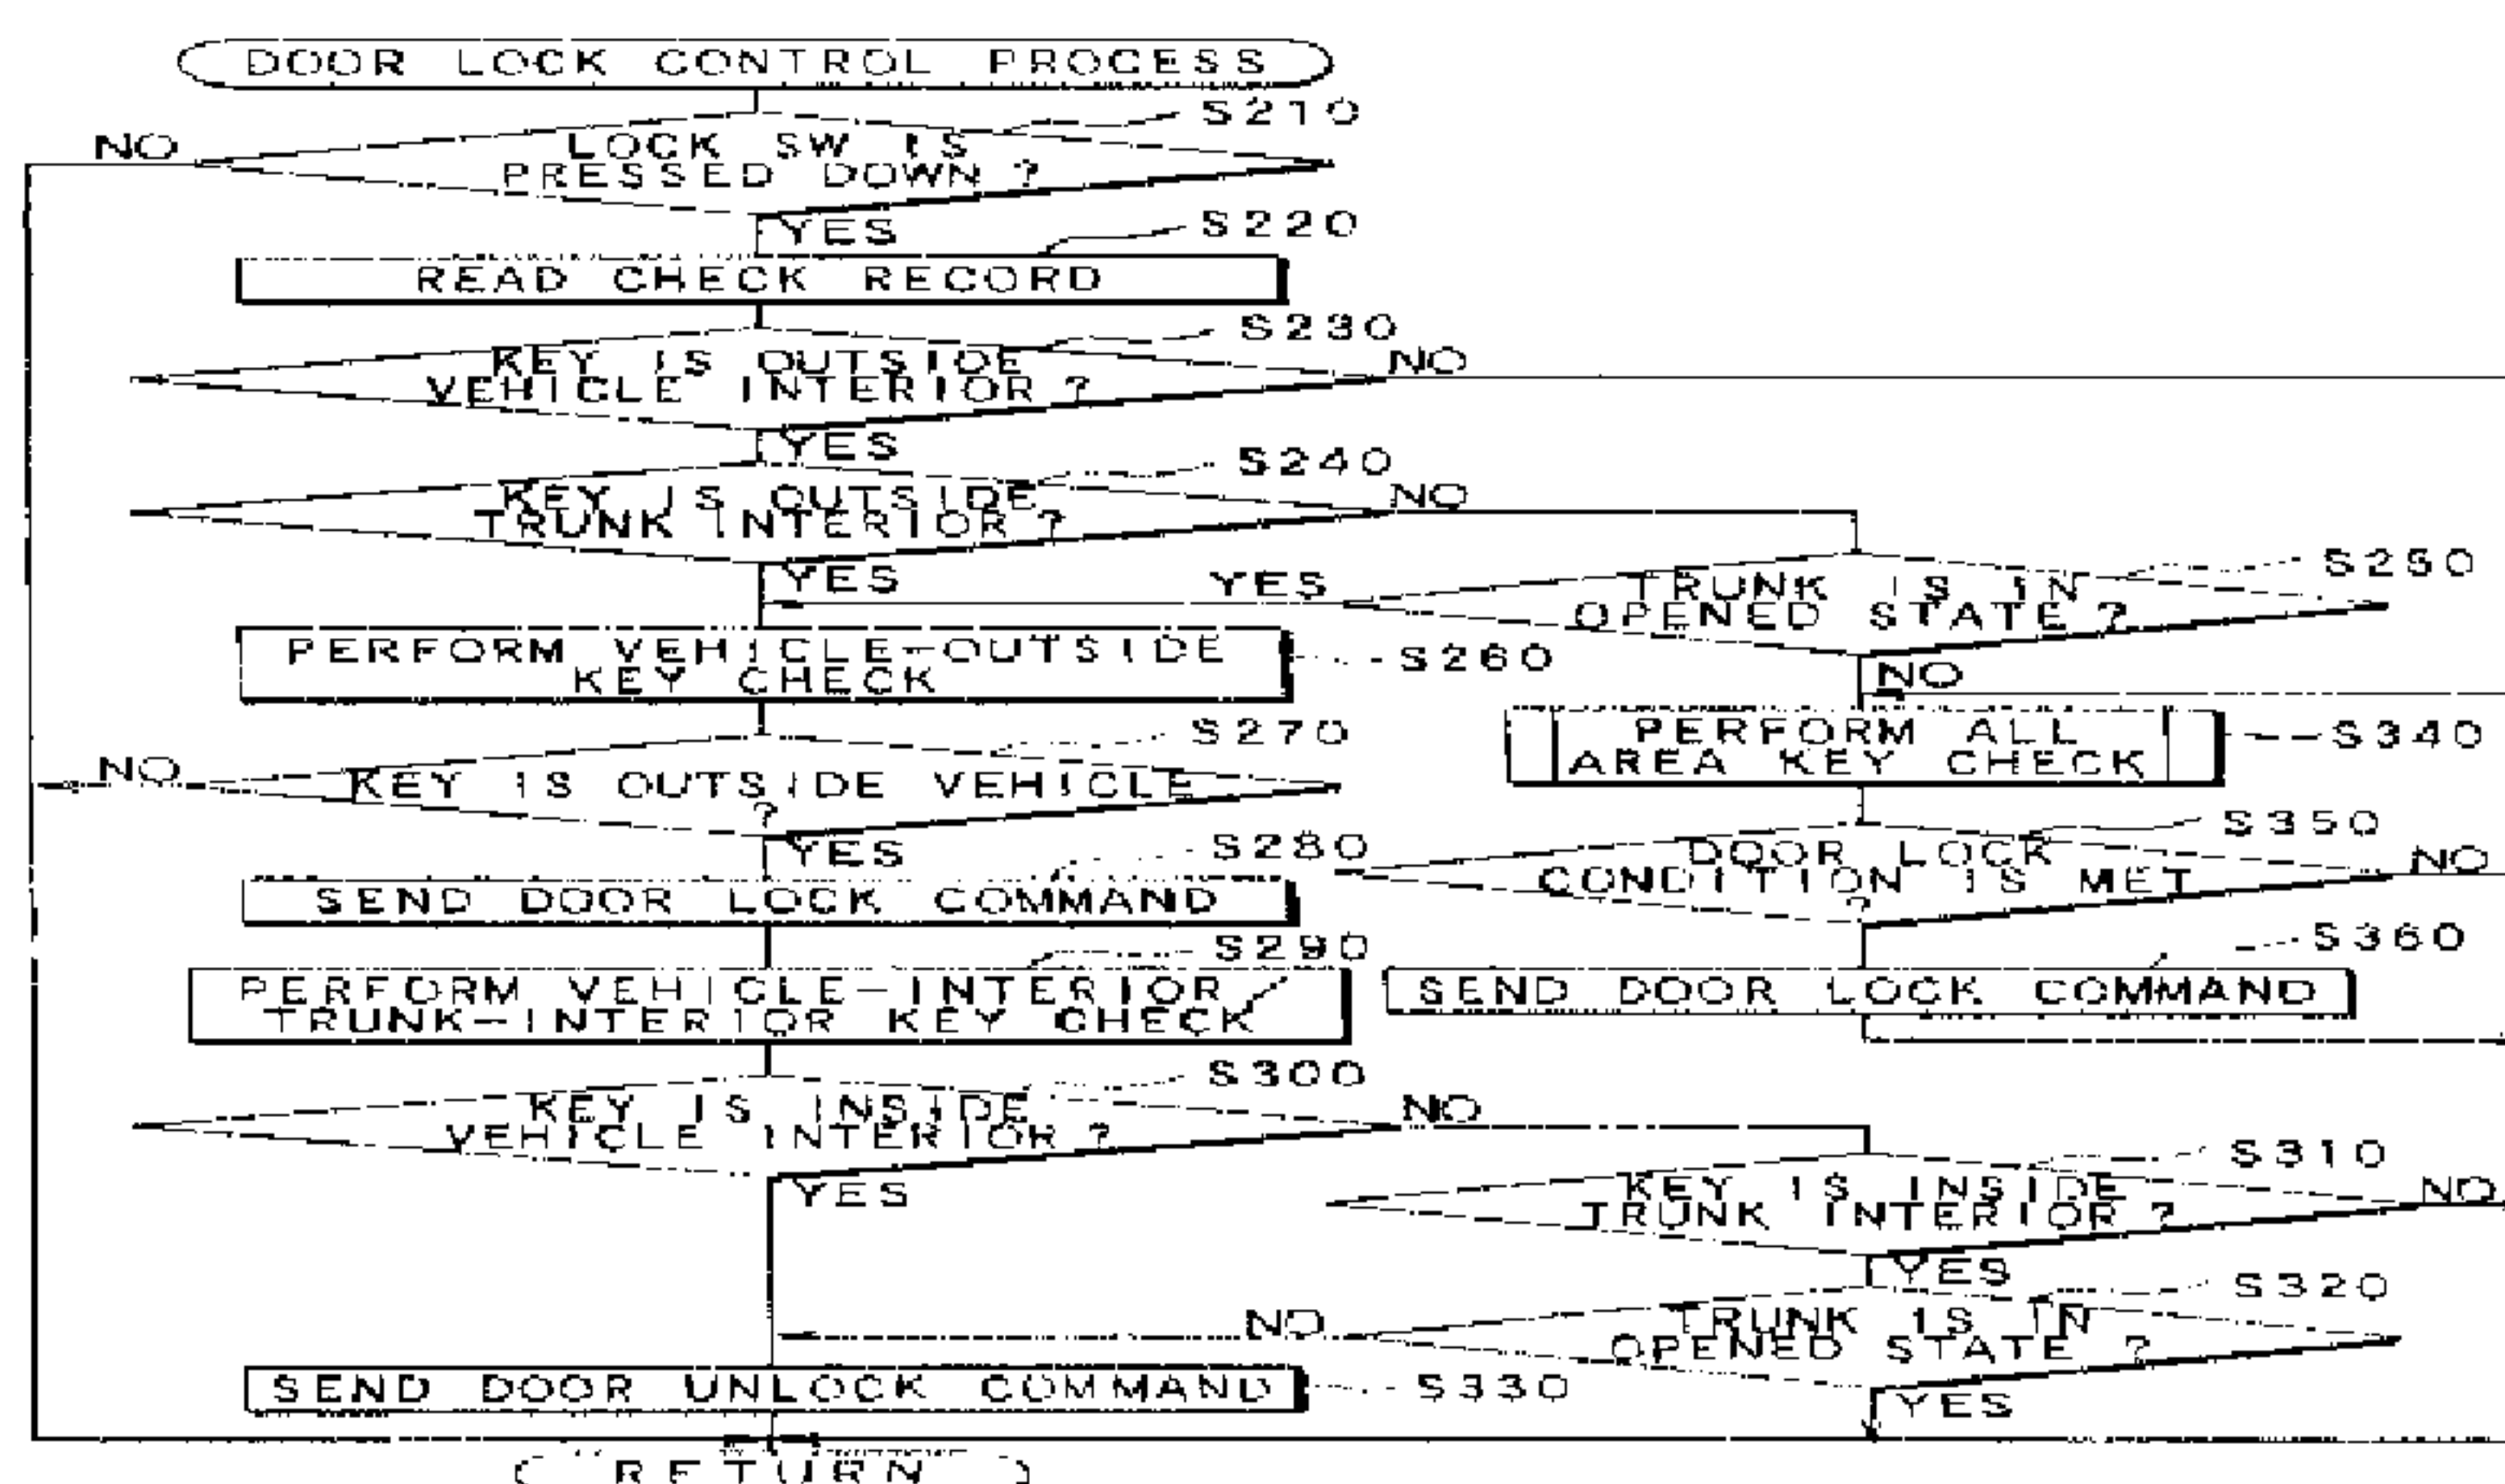 DOOR LOCK CONTROL PROCESS
S210
NO
LOCK SW IS
PRESSED DOWN ?
YES
S220
READ CHECK RECORD
S230
KEY IS OUTSIDE
VEHICLE INTERIOR ?
NO
YES
S240
KEY IS OUTSIDE
TRUNK INTERIOR ?
NO
YES
S250
TRUNK IS IN
OPENED STATE ?
YES
NO
PERFORM VEHICLE-OUTSIDE
KEY CHECK
S260
PERFORM ALL
AREA KEY CHECK
S340
S270
NO
KEY IS OUTSIDE VEHICLE
?
YES
S350
DOOR LOCK
CONDITION IS MET
?
NO
S280
SEND DOOR LOCK COMMAND
S360
SEND DOOR LOCK COMMAND
S290
PERFORM VEHICLE-INTERIOR/
TRUNK-INTERIOR KEY CHECK
S300
KEY IS INSIDE
VEHICLE INTERIOR ?
NO
YES
S310
KEY IS INSIDE
TRUNK INTERIOR ?
NO
YES
S320
TRUNK IS IN
OPENED STATE ?
NO
YES
SEND DOOR UNLOCK COMMAND
S330
RETURN